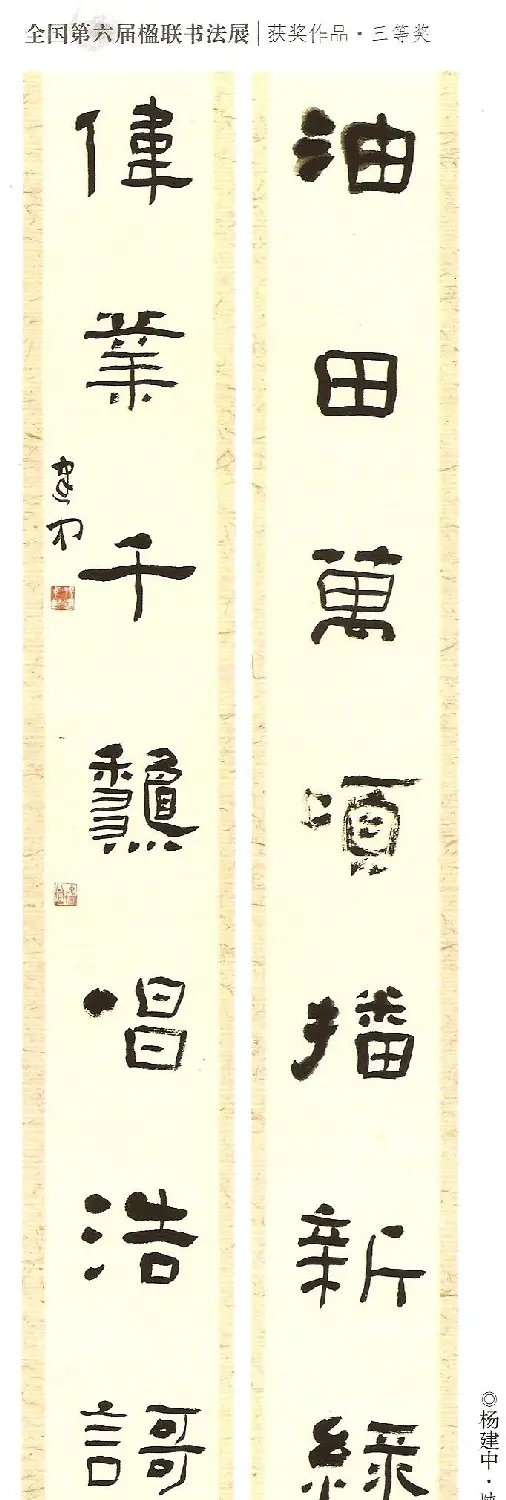 全国第六届楹联书法展|获奖作品·三等奖
油田萬頃播新綠
偉業千龝唱浩謌
建中
◎杨建中·